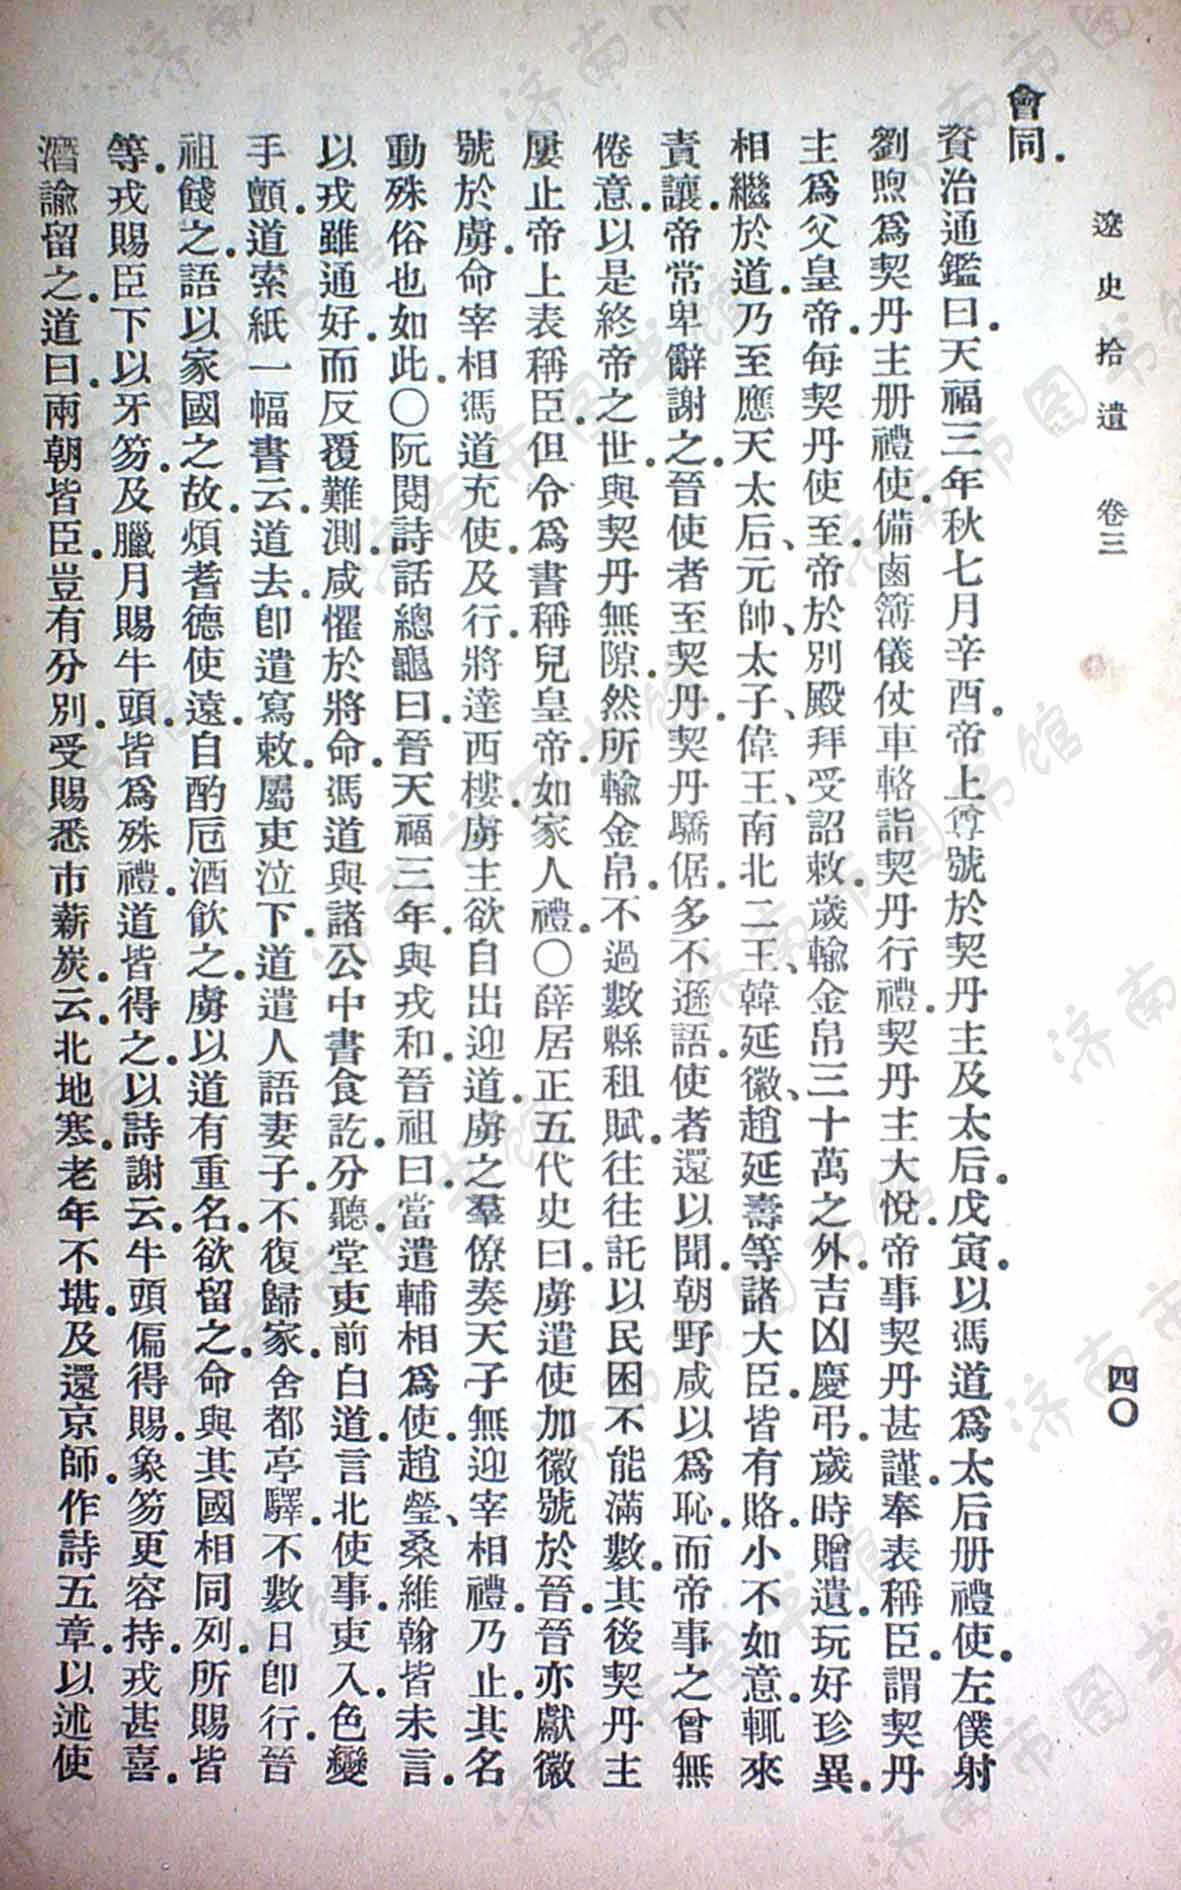 遼史拾遺 卷三 四〇
會同。
資治通鑑曰。天福三年秋七月辛酉。帝上尊號於契丹主及太后。戊寅。以馮道爲太后册禮使。左僕射
劉煦爲契丹主册禮使。備鹵簿儀仗車輅詣契丹行禮。契丹主大悅。帝事契丹甚謹。奉表稱臣。謂契丹
主爲父皇帝。每契丹使至。帝於別殿拜受詔敕。歲輸金帛三十萬之外。吉凶慶弔。歲時贈遺。玩好珍異。
相繼於道。乃至應天太后、元帥、太子、偉王、南北二王、韓延徽、趙延壽等諸大臣。皆有賂。小不如意。輒來
責讓。帝常卑辭謝之。晉使者至契丹。契丹驕倨。多不遜語。使者還以聞。朝野咸以爲恥。而帝事之曾無
倦意。以是終帝之世。與契丹無隙。然所輸金帛。不過數縣租賦。往往託以民困不能滿數。其後契丹主
屢止帝上表稱臣。但令爲書稱兒皇帝。如家人禮。〇薛居正五代史曰。虜遣使加徽號於晉。晉亦獻徽
號於虜。命宰相馮道充使。及行。將達西樓。虜主欲自出迎道。虜之羣僚奏天子無迎宰相禮。乃止。其名
動殊俗也如此。〇阮閱詩話總龜曰。晉天福三年。與戎和。晉祖曰。當遣輔相爲使。趙瑩、桑維翰皆未言。
以戎雖通好。而反覆難測。咸懼於將命。馮道與諸公中書食訖。分聽。堂吏前白道。言北使事。吏入。色變
手顫。道索紙一幅。書云。道去。卽遣寫敕。屬吏泣下。道遣人語妻子。不復歸家。舍都亭驛。不數日卽行。晉
祖餞之。語以家國之故。煩耆德使遠。自酌卮酒飮之。虜以道有重名。欲留之。命與其國相同列。所賜皆
等。戎賜臣下以牙笏。及臘月賜牛頭。皆爲殊禮。道皆得之。以詩謝云。牛頭偏得賜。象笏更容持。戎甚喜。
潛諭留之。道曰。兩朝皆臣。豈有分別。受賜悉市薪炭。云。北地寒。老年不堪。及還京師。作詩五章。以述使